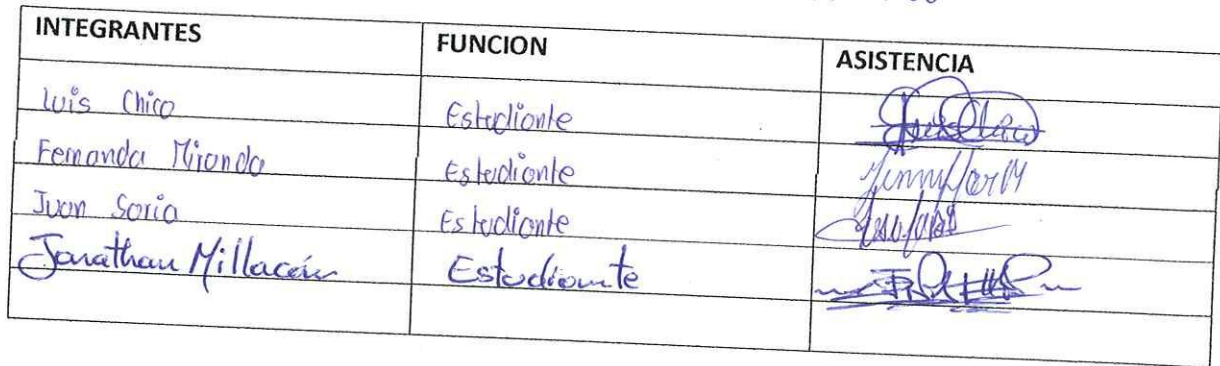 INTEGRANTES FUNCION ASISTENCIA
Luis Chico Estudiante
Fernanda Miranda Estudiante
Juan Soria Estudiante
Jonathan Estudiante